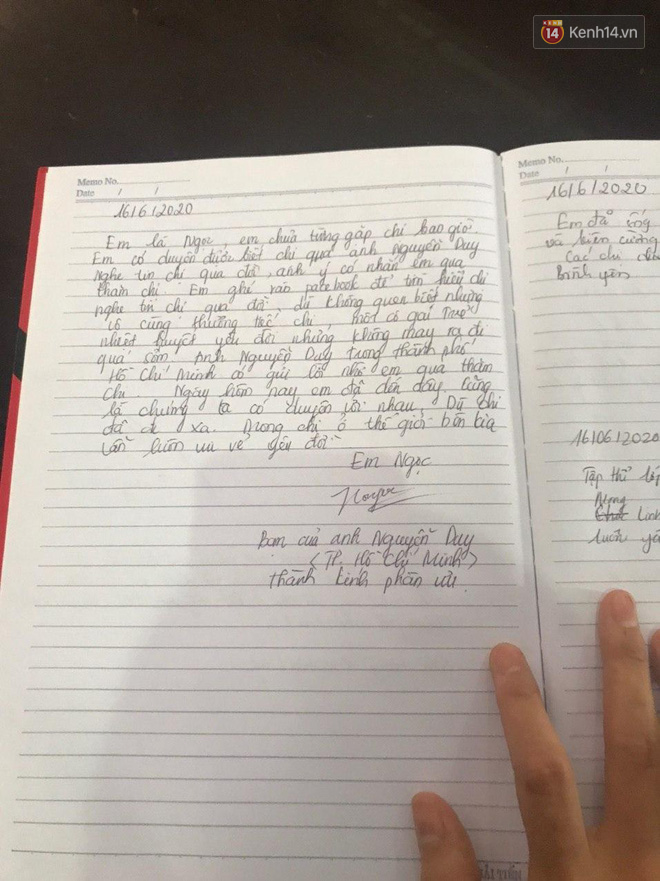 14 Kenh14.vn
Memo No.
Date / /
16/6/2020
Em là Ngọc, em chưa từng gặp chị bao giờ.
Em có duyên được biết chị qua anh Nguyễn Duy
Nghe tin chị qua đời, anh ý có nhắn em qua
thăm chị. Em ghé vào facebook để tìm hiểu chị
nghe tin chị qua đời, dù không quen biết nhưng
vô cùng thương tiếc chị, một cô gái trẻ
nhiệt huyết yêu đời nhưng không may ra đi
quá sớm. Anh Nguyễn Duy trong thành phố
Hồ Chí Minh có gửi lời nhờ em qua thăm
chị. Ngày hôm nay em đã đến đây, cũng
là chúng ta có duyên với nhau. Dù chị
đã đi xa. Mong chị ở thế giới bên kia
vẫn luôn vui vẻ yêu đời
Em Ngọc
Bạn của anh Nguyễn Duy
(TP. Hồ Chí Minh)
thành kính phân ưu
Memo No.
Date / /
16/6/2020
Em đã
và kiên cường
Các chị
Bình yên
16/06/2020
Tập thể lớp
Linh
luôn
HẢI TIẾN